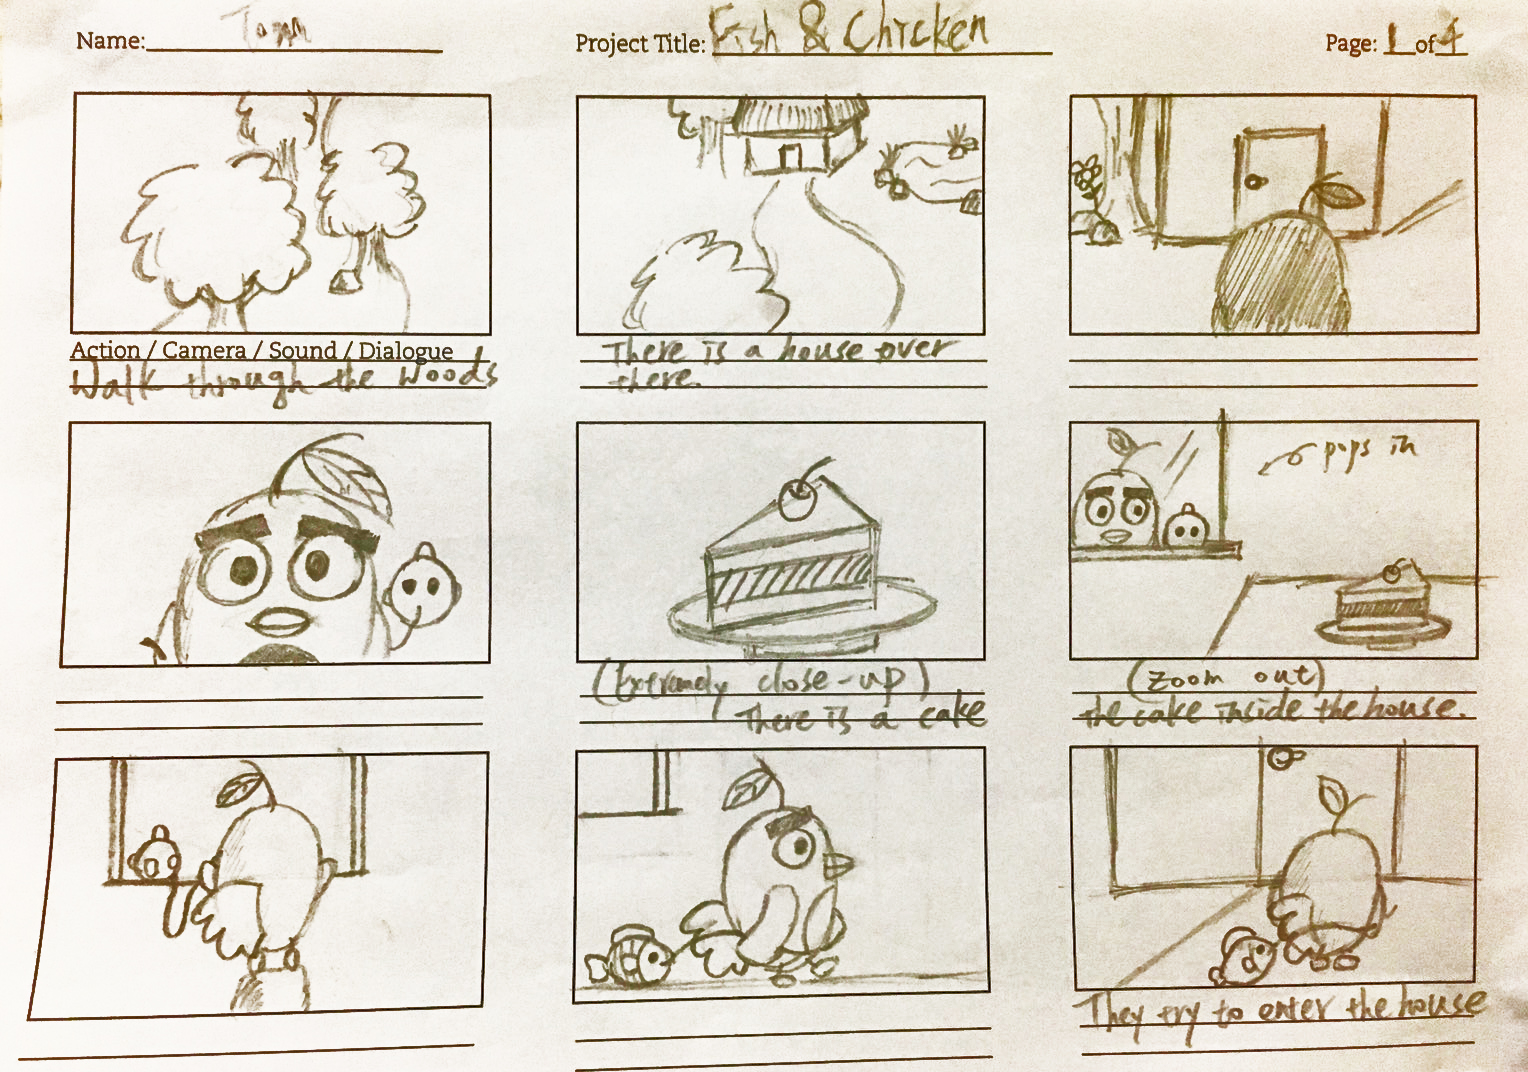 Name: Tom
Project Title: Fish & Chicken
Page: 1 of 4
Action / Camera / Sound / Dialogue
Walk through the woods
There is a house over
there.
pops in
(Extremely close-up)
There is a cake
(zoom out)
the cake inside the house.
They try to enter the house